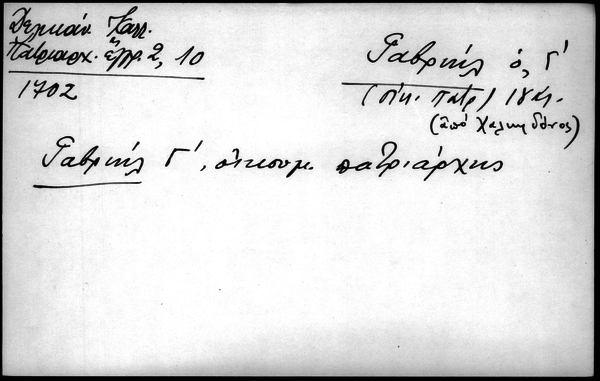 Δελικάν Καλλ.
Πατριαρχ. έγγρ. 2, 10
1702
Γαβριήλ ὁ, Γ΄
(οἰκ. πατρ) 18 αι.
(ἀπό Χαλκηδόνος)
Γαβριήλ Γ΄, οἰκουμ. πατριάρχης